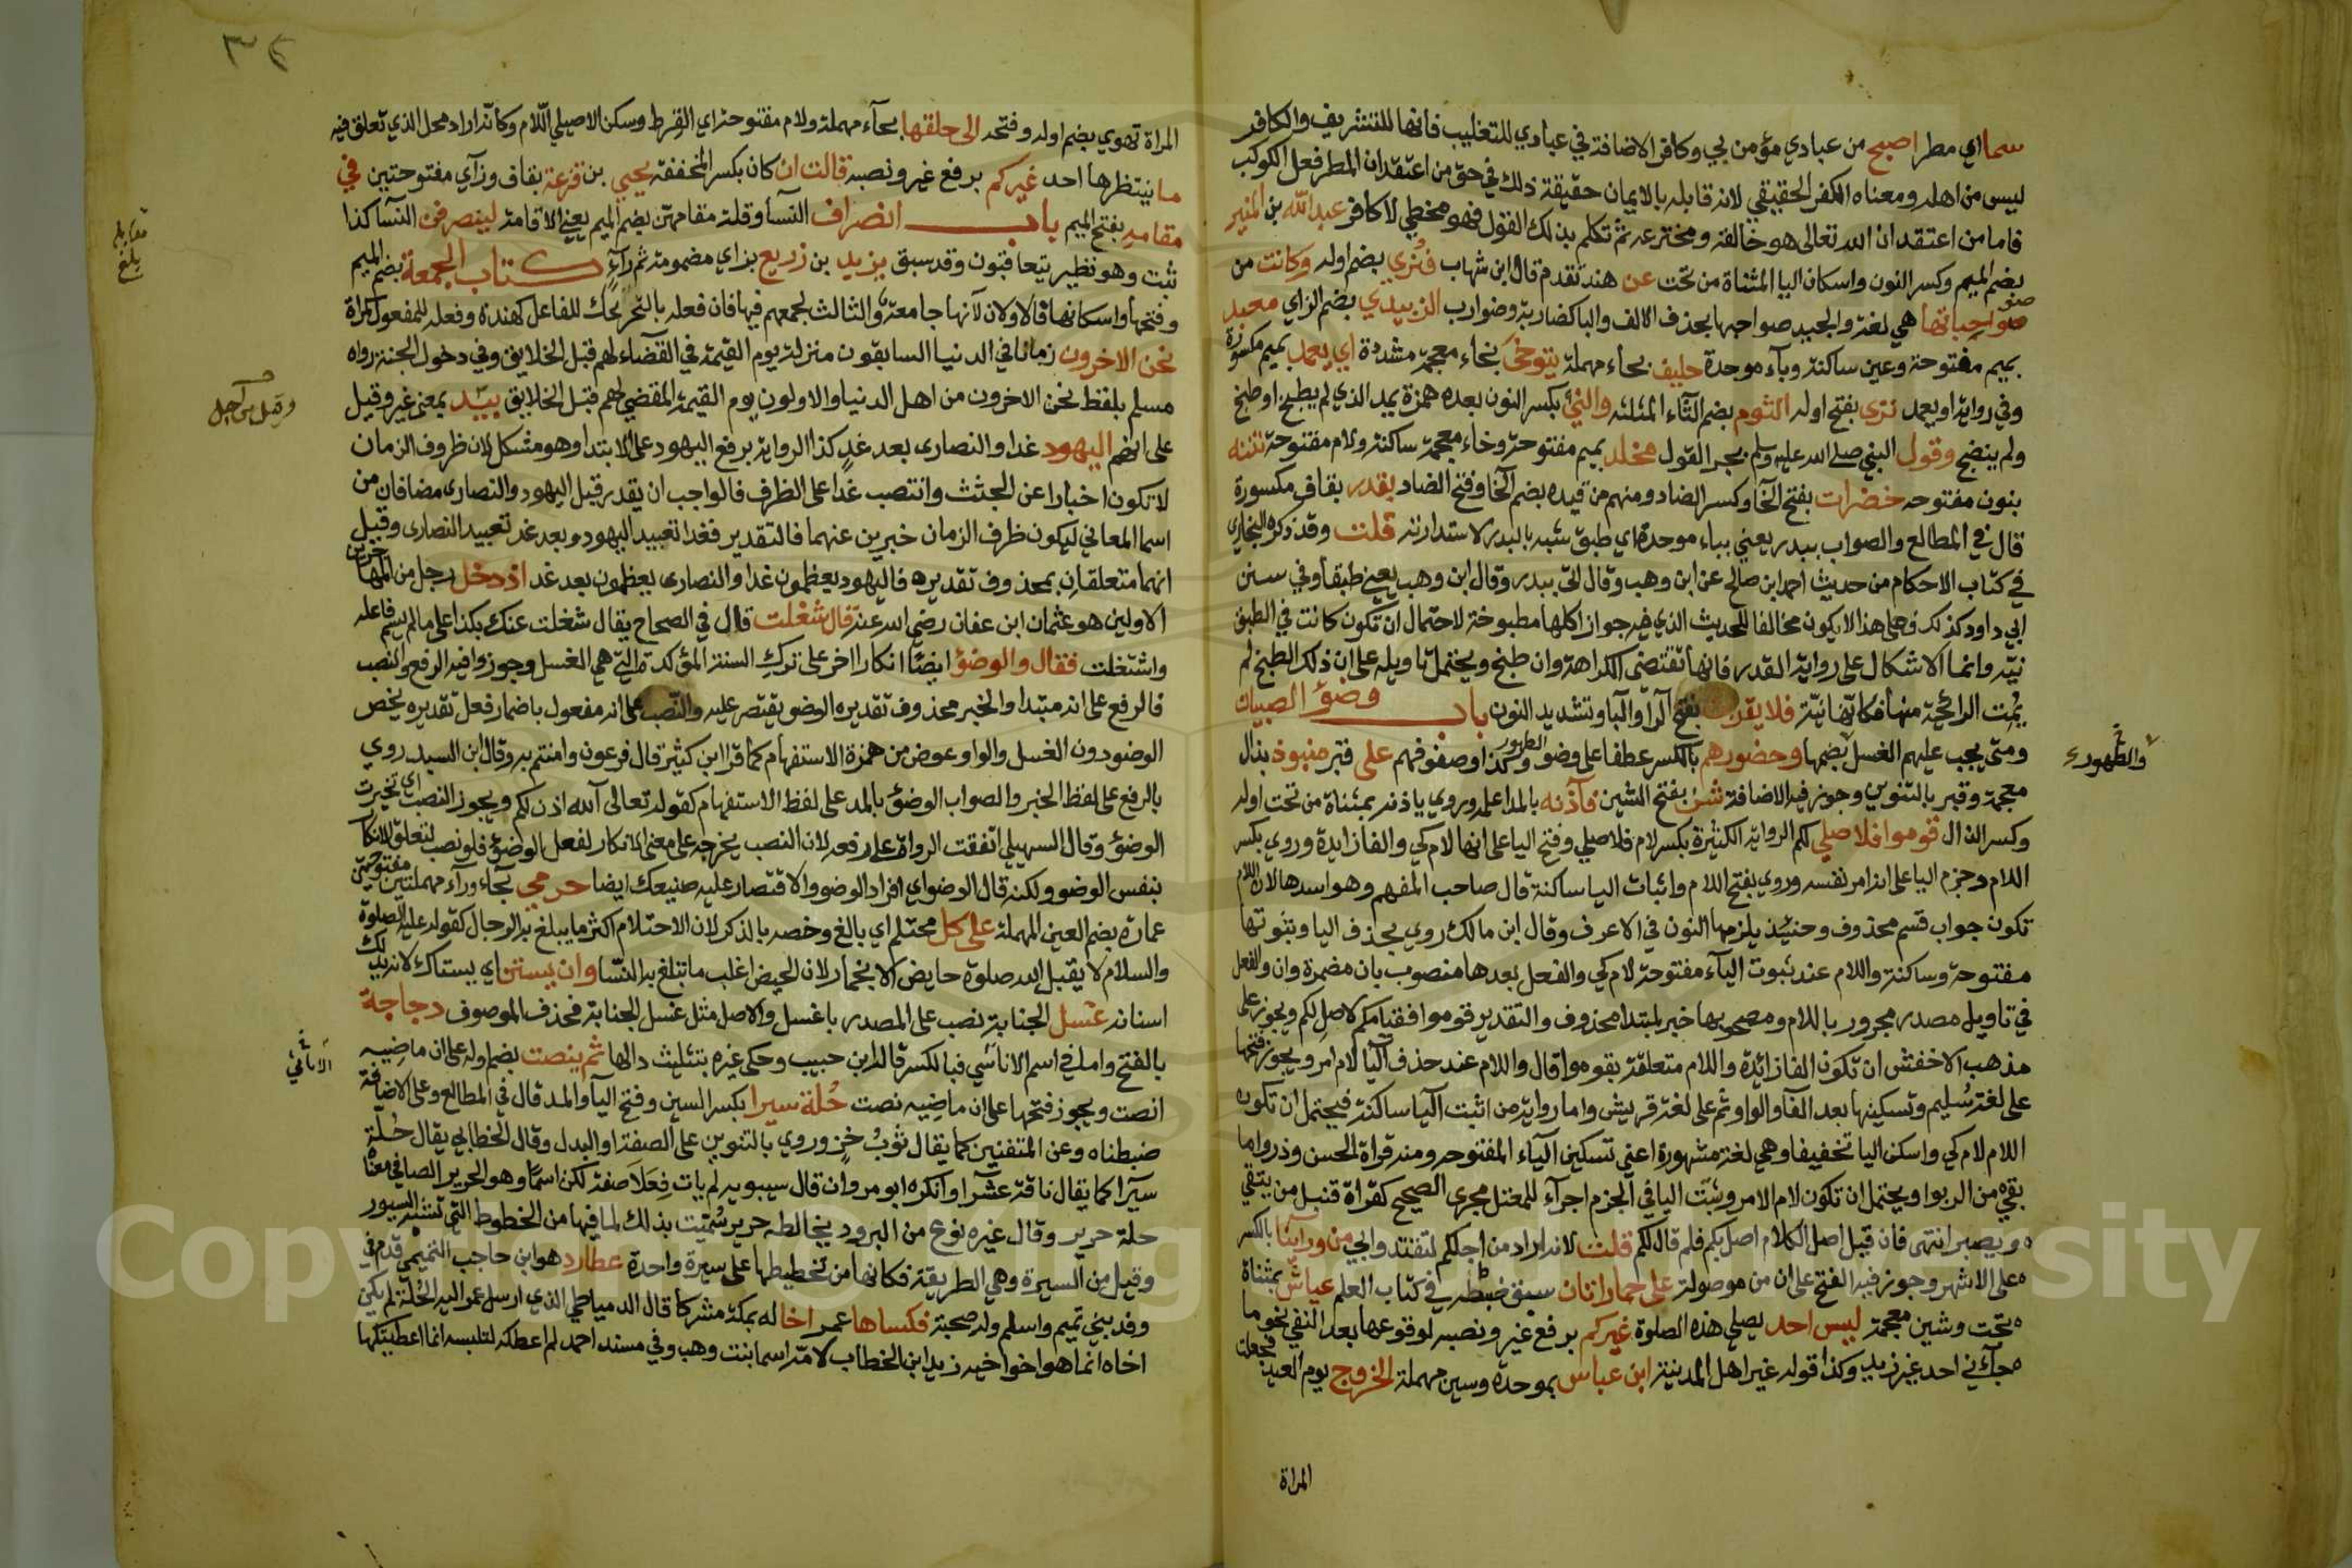 سما اي مطر اصبح من عبادي مؤمن بي وكافر الاضافة في عبادي للتغليب فانها للتشريف والكافر
ليس من اهله ومعناه الكفر الحقيقي لانه قابله بالايمان حقيقة ذلك في حق من اعتقد ان المطر فعل الكوكب
فاما من اعتقد ان الله تعالى هو خالقه ومخترعه ثم تكلم بذلك القول فهو مخطي لا كافر عبد الله بن المنير
بضم الميم وكسر النون واسكان اليا المثناة من تحت عن هند تقدم قال ابن شهاب فنري بضم اوله وكانت من
صواحباتها هي لغة والجيد صواحبها بحذف الالف والبا كضاربة وضوارب الزبيدي بضم الزاي معبد
صو
بميم مفتوحة وعين ساكنة وبآء موحدة حليف بحاء مهملة يتوخى بخاء معجمة مشددة اي يعمل بميم مكسورة
وفي رواية او يعمد نرى بفتح اوله الثوم بضم الثاء المثلثه والنئ بكسر النون بعده همزة يمد الذي لم يطبخ او طبخ
ولم ينضج وقول النبي صلى الله عليه وسلم بجر القول مخلد بميم مفتوحة وخاء معجمة ساكنة ولام مفتوحة نتنه
بنون مفتوحه خضرات بفتح الخا وكسر الضاد ومنهم من قيده بضم الخا وفتح الضاد بقدر بقاف مكسورة
قال في المطالع والصواب ببدر يعني بباء موحدة اي طبق شبه بالبدر لاستدارته قلت وقد ذكره البخاري
في كتاب الاحكام من حديث احمد ابن صالح عن ابن وهب وقال اتي ببدر وقال ابن وهب يعني طبقا وفي سنن
ابي داود كذلك فعلى هذا لا يكون مخالفا للحديث الذي فيه جواز اكلها مطبوخة لاحتمال ان تكون كانت في الطبق
نيه وانما الاشكال على رواية القدر فانها تقتضي الكراهة وان طبخ ويحتمل تاويله على ان ذلك الطبخ لم
يمت الرائحة منها فكانها نية فلا يقربنا بفتح الرا والبا وتشديد النون باب وضوء الصبيان
ومتى يجب عليهم الغسل بضمها وحضورهم بالكسر عطفا على وضو وكذا وصفوفهم على قبر منبوذ بذال
الطهور
والطهور
معجمة وقبر بالتنوين وجوز فيه الاضافة شن بفتح الشين فآذنه بالمد اعلمه وروي ياذنه بمثناة من تحت اوله
وكسر الذال قوموا فلاصلي لكم الرواية الكثيرة بكسر لام فلاصلي وفتح اليا على انها لام كي والفا زايدة وروي بكسر
اللام وجزم اليا على انه امر نفسه وروي بفتح اللام واثبات اليا ساكنة قال صاحب المفهم وهو اسدها لان اللام
تكون جواب قسم محذوف وحنيئذ يلزمها النون في الاعرف وقال ابن مالك روي بحذف اليا وبثبوتها
مفتوحة وساكنة واللام عند ثبوت اليآء مفتوحة لام كي والفعل بعدها منصوب بان مضمرة وان والفعل
في تاويل مصدر مجرور باللام ومصحوبها خبر لمبتدا محذوف والتقدير قوموا فقيامكم لاصل لكم ويجوز على
مذهب الاخفش ان تكون الفا زائدة واللام متعلقة بقوموا قال واللام عند حذف اليا لام امر ويجوز فتحها
على لغة سليم وتسكينها بعد الفا والواو وثم على لغة قريش واما رواية من اثبت اليا ساكنة فيحتمل ان تكون
اللام لام كي واسكن اليا تخفيفا وهي لغة مشهورة اعني تسكين اليآء المفتوحه ومنه قراة الحسن وذروا ما
بقي من الربوا ويحتمل ان تكون لام الامر وثبت اليا في الجزم اجرآء للمعتل مجرى الصحيح كقراة قنبل من يتقي
ويصبر انتهى فان قيل اصل الكلام اصل بكم فلم قال لكم قلت لانه اراد من اجلكم لتقتدوا بي من ورآئنا بالكسر
على الاشهر وجوز فيه الفتح على ان من موصولة على حمار اتان سبق ضبطه في كتاب العلم عياش بمثناة
تحت وشين معجمة ليس احد يصلي هذه الصلوة غيركم برفع غير ونصبه لوقوعها بعد النفي نحو ما
جآءني احد غير زيد وكذا قوله غير اهل المدينة ابن عباس بموحدة وسين مهملة الخروج يوم العيد فجعلت
المراة
٣٤
المراة تهوي بضم اوله وفتحه الى حلقها بحآء مهملة ولام مفتوحة اي القرط وسكن الاصيلي اللام وكانه اراد محل الذي تعلق فيه
ما ينتظرها احد غيركم برفع غير ونصبه قالت ان كان بكسر المخففة يحيي بن قزعة بقاف وزآي مفتوحتين في
مقامه بفتح الميم باب انصراف النسآ وقلة مقامهن بضم الميم يعني الاقامة لينصرفن النسآ كذا
ثبت وهو نظير يتعاقبون وقد سبق يزيد بن زريع بزاي مضمومة ثم رآء كتاب الجمعة بضم الميم
مقابله
بلغ
وفتحها واسكانها فالاولان لانها جامعة والثالث لجمعهم فيها فان فعلة بالتحريك للفاعل كهمزة وفعلة للمفعول كمراة
نحن الاخرون زمانا في الدنيا السابقون منزلة يوم القيمة في القضاء لهم قبل الخلايق وفي دخول الجنة رواه
مسلم بلفظ نحن الاخرون من اهل الدنيا والاولون يوم القيمة المقضي لهم قبل الخلايق بيد بمعنى غير وقيل
وقيل من اجل
على انهم اليهود غدا والنصارى بعد غد كذا الرواية برفع اليهود على الابتدا وهو مشكل لان ظروف الزمان
لا تكون اخبارا عن الجثث وانتصب غدا على الظرف فالواجب ان يقدر قبل اليهود والنصارى مضافان من
اسما المعاني ليكون ظرف الزمان خبرين عنهما فالتقدير فغدا تعييد اليهود وبعد غد تعييد النصارى وقيل
انهما متعلقان بمحذوف تقديره فاليهود يعظمون غدا والنصارى يعظمون بعد غد اذ دخل رجل من المهاجرين
الاولين هو عثمان ابن عفان رضي الله عنه قال شغلت قال في الصحاح يقال شغلت عنك بكذا على ما لم يسم فاعله
واشتغلت فقال والوضؤ ايضا انكارا اخر على ترك السنة المؤكدة التي هي الغسل وجوزوا فيه الرفع والنصب
فالرفع على انه مبتدا والخبر محذوف تقديره الوضو يقتصر عليه والنصب على انه مفعول باضمار فعل تقديره يخص
الوضو دون الغسل والواو عوض من همزة الاستفهام كما قرا ابن كثير قال فرعون وامنتم به وقال ابن السيد روي
بالرفع على لفظ الخبر والصواب الوضؤ بالمد على لفظ الاستفهام كقوله تعالى آلله اذن لكم ويجوز النصب اي تخيرت
الوضؤ وقال السهيلي اتفقت الرواة على رفعه لان النصب يخرجه على معنى الانكار لفعل الوضؤ فلو نصب لتعلق الانكار
بنفس الوضو ولكنه قال الوضو اي افراد الوضو والاقتصار عليه صنيعك ايضا حرمي بحآء ورآء مهملتين مفتوحتين
عمارة بضم العين المهملة على كل محتلم اي بالغ وخصه بالذكر لان الاحتلام اكثر ما يبلغ به الرجال كقوله عليه الصلوة
والسلام لا يقبل الله صلوة حايض الا بخمار لان الحيض اغلب ما تبلغ به النسا وان يستن اي يستاك لانه يدلك
اسنانه غسل الجنابة نصب على المصدر باغسل والاصل مثل غسل الجنابة فحذف الموصوف دجاجة
بالفتح واما في اسم الاناسي فبالكسر قاله ابن حبيب وحكى غيره بتثليث دالها ثم ينصت بضم اوله على ان ماضيه
الاناثي
انصت ويجوز فتحها على ان ماضيه نصت حلة سيرا بكسر السين وفتح اليآ والمد قال في المطالع وعلى الاضافة
ضبطناه وعن المتقنين كما يقال ثوب خز وروي بالتنوين على الصفة او البدل وقال الخطابي يقال حلة
سيرا كما يقال ناقة عشرا وانكره ابو مروان قال سيبويه لم يات فعلا صفة لكن اسما وهو الحرير الصافي معناه
حلة حرير وقال غيره نوع من البرود يخالطه حرير سميت بذلك لما فيها من الخطوط التي تشبه السيور
وقيل من السيرة وهي الطريقة فكانها من تخطيطها على سيرة واحدة عطارد هو ابن حاجب التميمي قدم في
وفد بني تميم واسلم وله صحبة فكساها عمر اخا له بمكة مشركا قال الدمياطي الذي ارسل عمر اليه الحلة لم يكن
اخاه انما هو اخو اخيه زيد ابن الخطاب لامه اسما بنت وهب وفي مسند احمد لم اعطكه لتلبسه انما اعطيتكها
Copyright © King Saud University